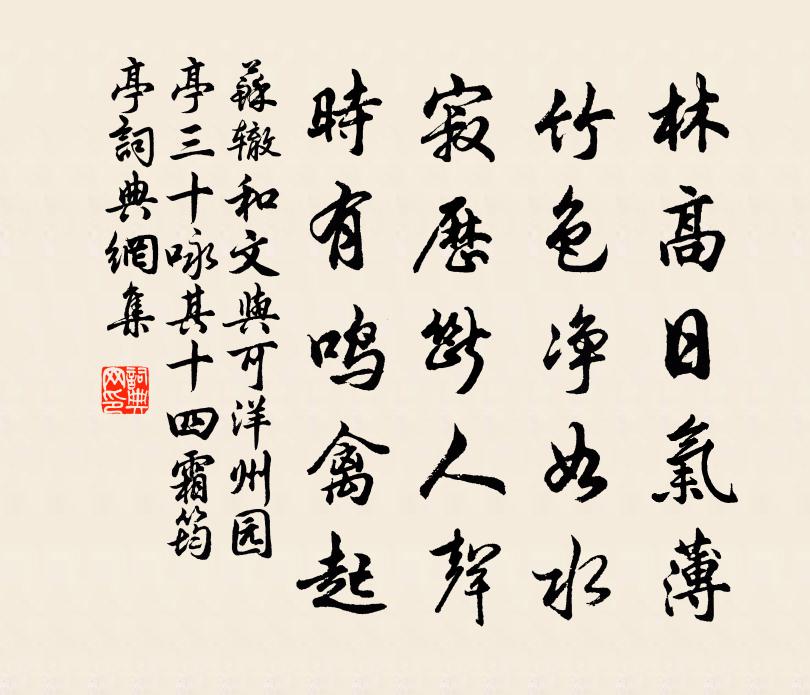 林高日氣薄
竹色净如水
寂歷斷人聲
時有鳴禽起
蘇辙和文與可洋州园
亭三十咏其十四霜筠
亭詞典網集
詞典網印